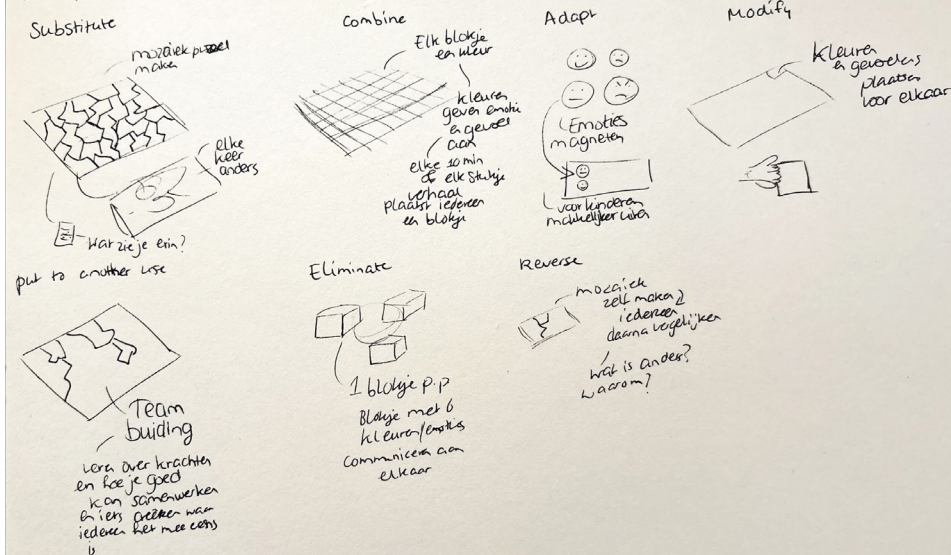 Substitute
mozaiek puzzel
maken
elke
keer
anders
Wat zie je erin?
Combine
Elk blokje
een kleur
kleuren
geven emotie
en gevoel
aan
elke 10 min
of elk stukje
verhaal
plaatst iedereen
een blokje
Adapt
Emoties
magneten
voor kinderen
makkelijker
Modify
Kleuren
en gevoelens
plaatsen
voor elkaar
put to another use
Team
buiding
Leren over krachten
en hoe je goed
kan samenwerken
en iets creëren waar
iedereen het mee eens
is
Eliminate
1 blokje p.p
Blokje met 6
kleuren/emoties
communiceren aan
elkaar
Reverse
mozaiek
zelf maken
iedereen
daarna vergelijken
wat is anders?
waarom?